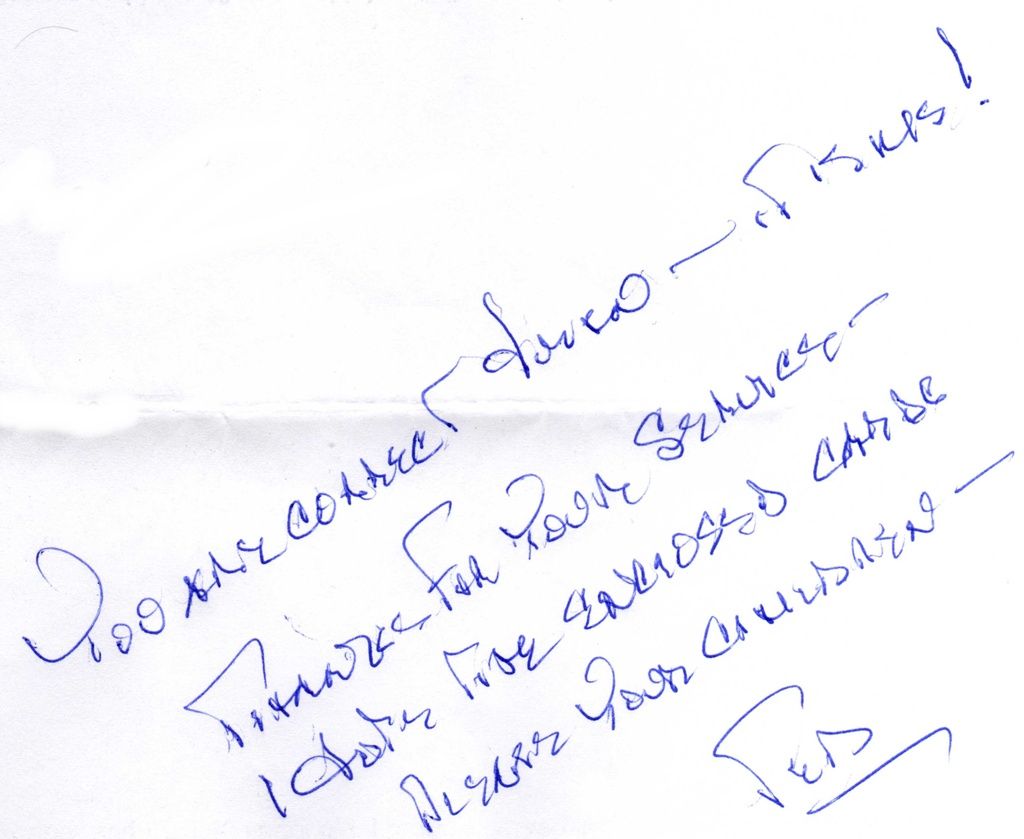 YOU ARE CORRECT — IT IS HIS!
THANKS FOR YOUR SERVICES —
I HOPE THE ENCLOSED CARDS
PLEASE YOUR CHILDREN —
TED